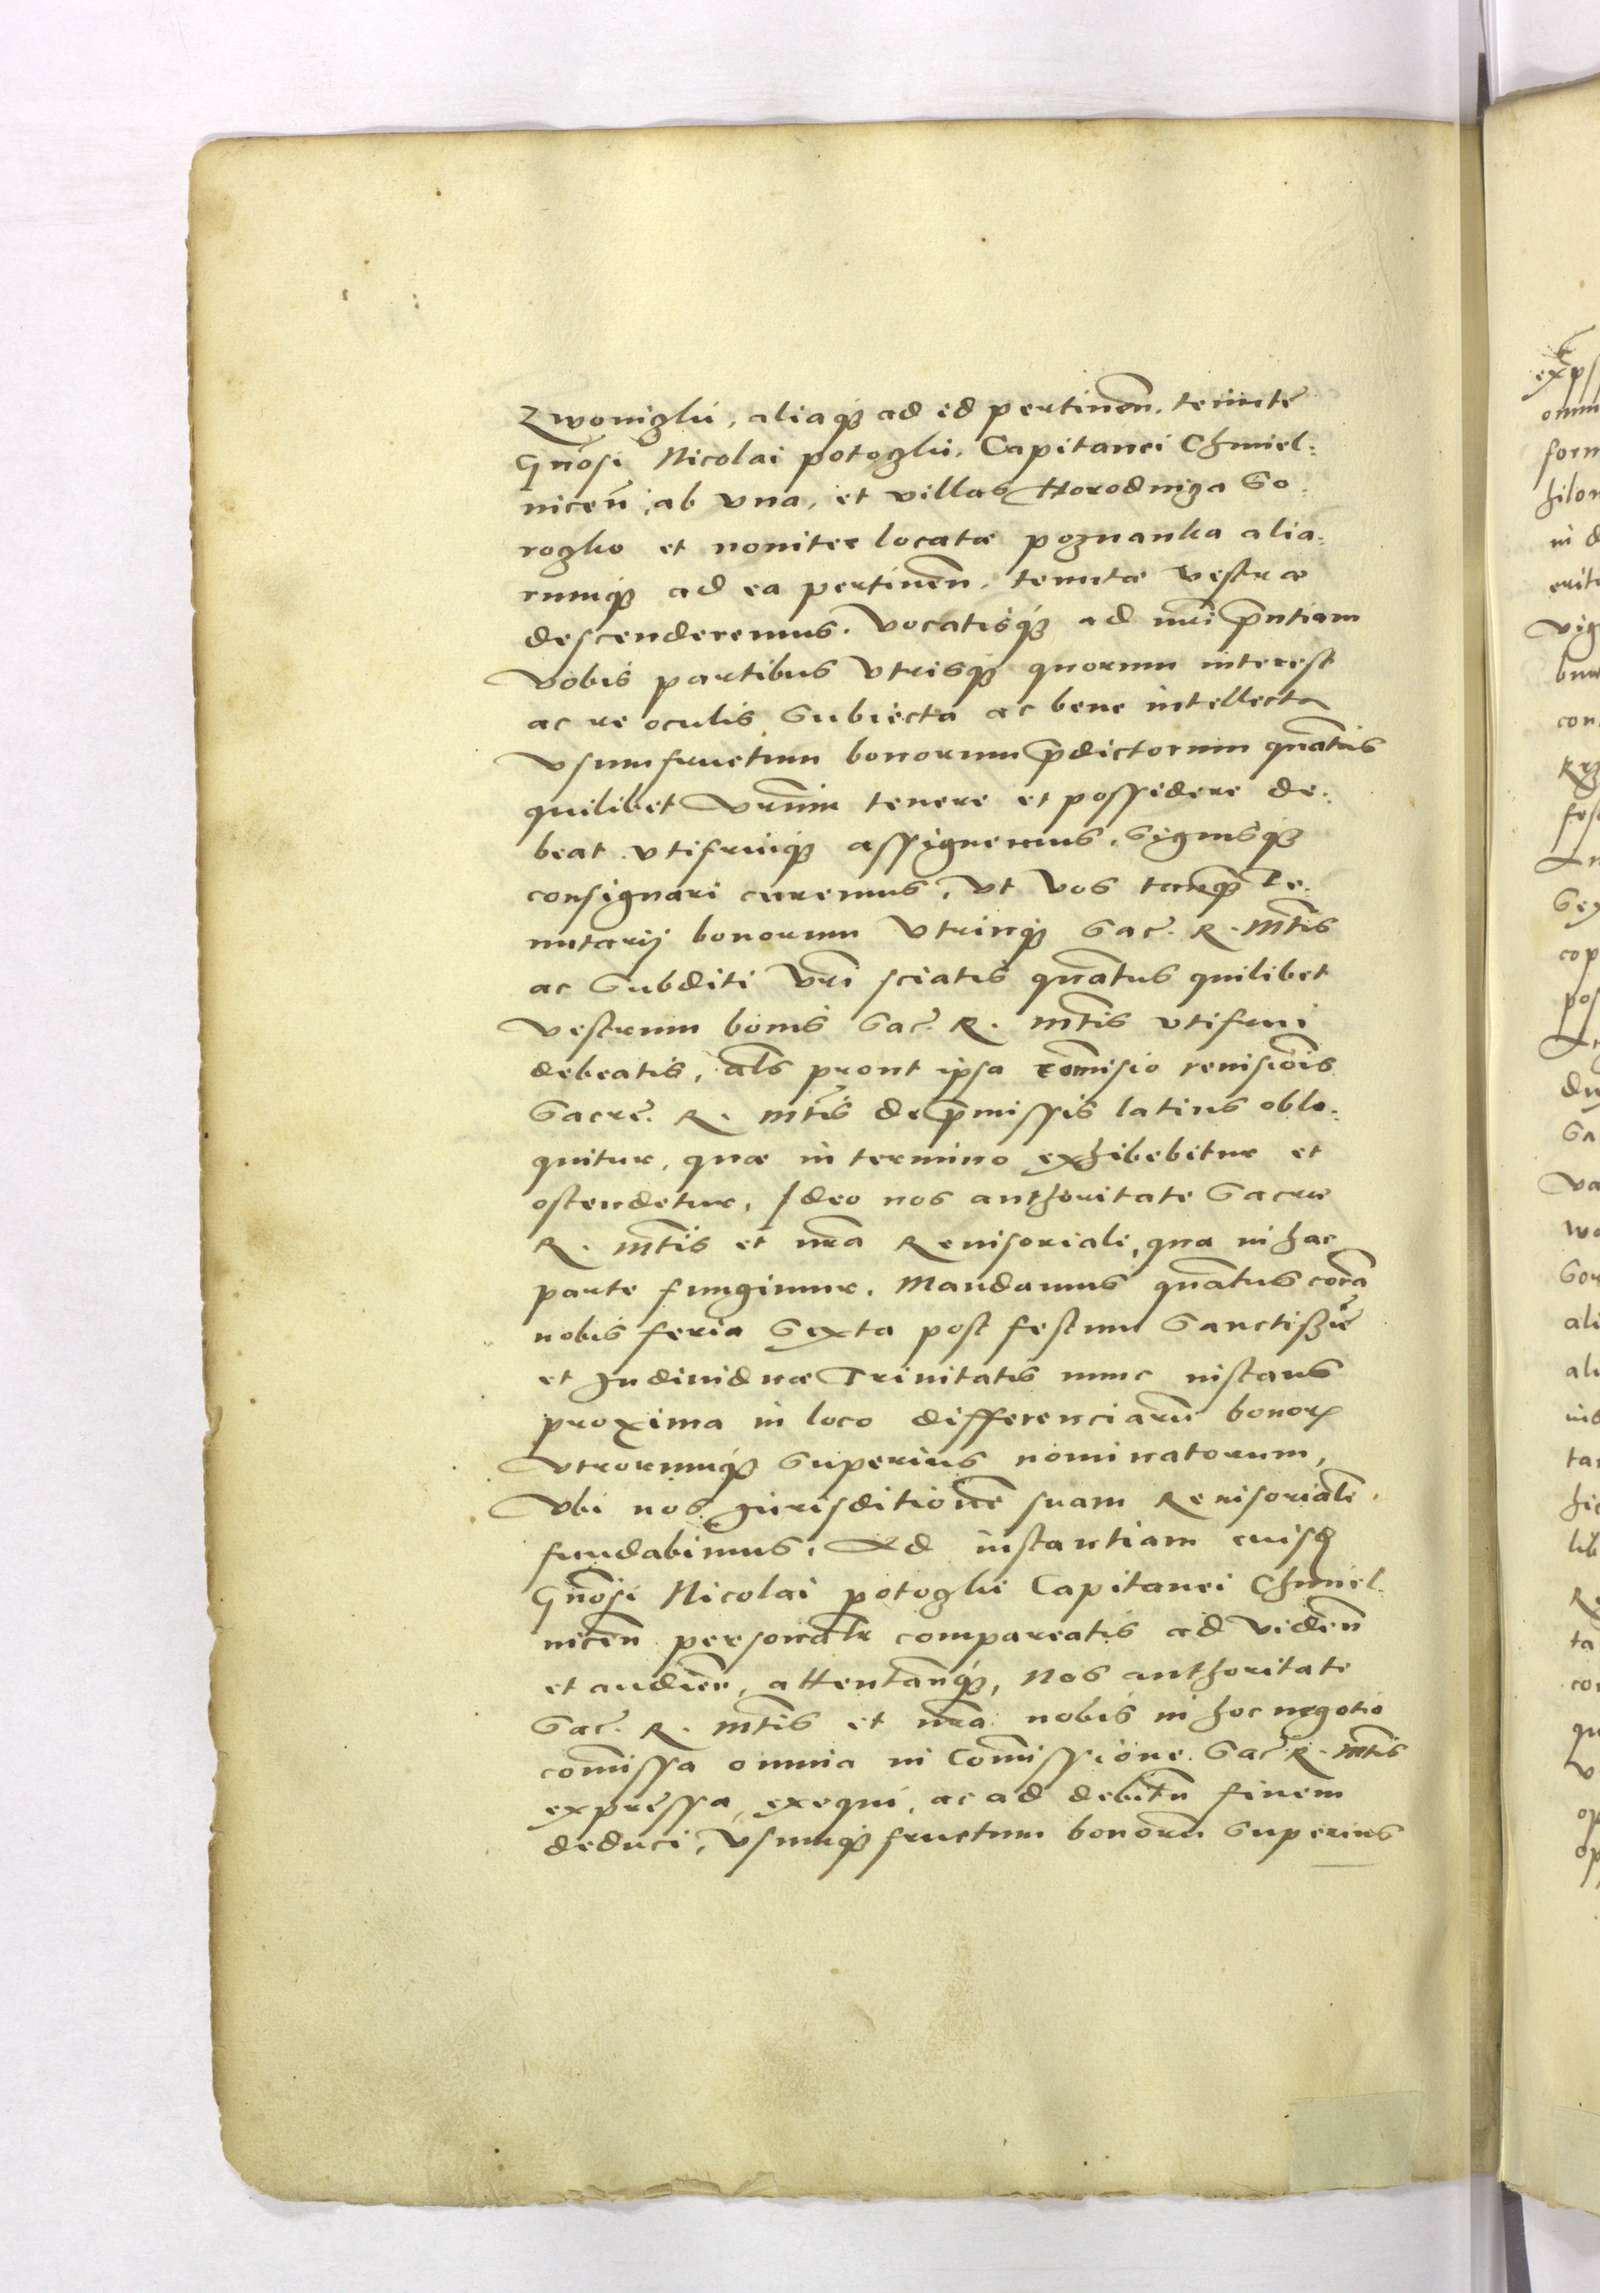 Zwonighi, aliaqꝫ ad id pertineñ. tenute
Gñosi Nicolai potoghi, Capitanei Chmiel:
niceñ, ab vna, et villas Horodniga So:
rogko et noniter locatæ poznanka alia:
rumqꝫ ad ea pertineñ. tenutæ vestræ
descenderemus. Vocatisqꝫ ad nri pñtiam
vobis partibus vtrisqꝫ quorum interest
ac re oculis subiecta ac bene intellecta
vsumfructum bonorum pdictorum quatus
quilibet vrum tenere et possidere de:
beat vtifruiqꝫ assignemus, signisqꝫ
consignari curemus, vt vos tanqꝫ Te:
nutarij bonorum vtrinqꝫ Sac. R. Mtis
ac Subditi vri sciatis quatus quilibet
vestrum bonis Sac. R. Mtis vtifrui
debeatis, als prout ipsa comisio reuisiois
Sacre. R. Mtis de pmissis latius oblo:
quitur, quæ in termino exhibebitur et
ostendetur, Ideo nos authoritate Sacræ
R. Mtis et nra Reuisoriali, qua in hac
parte fungimur. Mandamus quatus cora
nobis feria Sexta post festum Sanctiss
et Indiuiduæ Trinitatis nunc instans
proxima in loco differenciaru bonorꝫ
vtrorumqꝫ superius nominatorum,
Vbi nos Jurisditione suam Reuisoriale
fundabimus, Ad instantiam euisd
Gñosi Nicolai potoghi Capitanei Chmiel:
niceñ personalr compareatis ad videñ
et audieñ, attentanqꝫ, Nos authoritate
Sac. R. Mtis et nra nobis in hoc negotio
comissa omnia in Comissione Sac. R. Mtis
expressa, exequi, ac ad debitu finem
deduci, Vsumqꝫ fructum bonoru superius